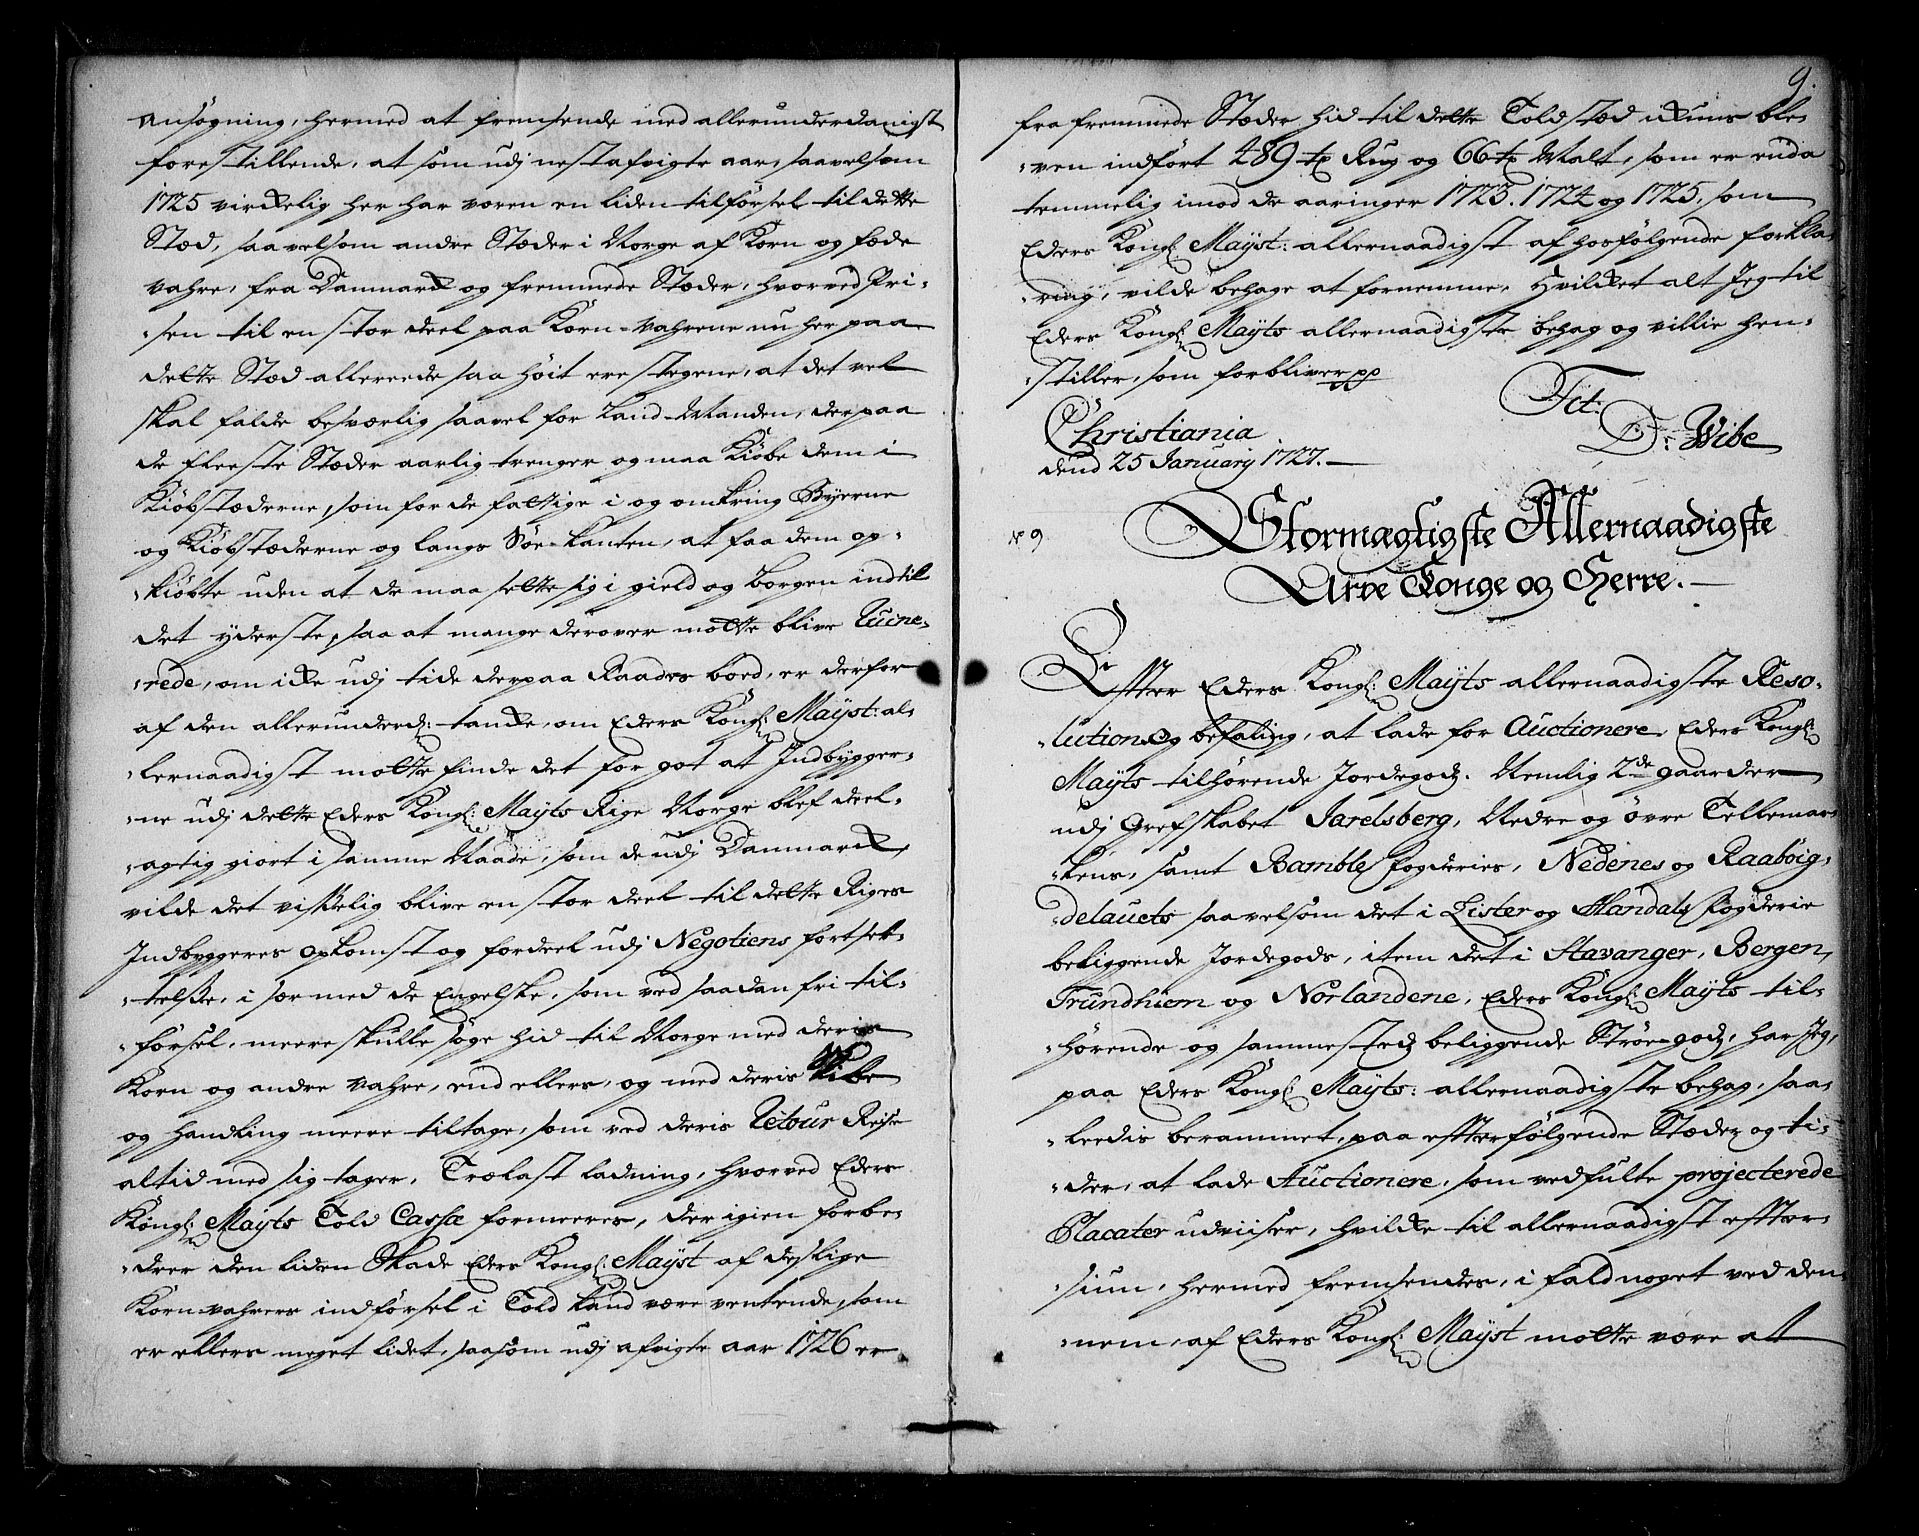 ansøgning, hermed at fremsende med allerunderdanigst
forestillende, at som udj nestafvigte aar, saavelsom
1725 virkelig her har været en liden tilførsel til dette
Stæd, saavelsom andre Stæder i Norge af Korn og føde
vahre, fra Danmark og fremmede Stæder, hvorved Pri-
-sen til en stor deel paa Korn-vahrene nu her paa
dette Stæd allereede saa høit ere stegene, at det vel
skal falde besværlig saavel for Land-Manden, der paa
de fleeste Stæder aarlig trenger og maa Kiøbe dem i
Kiøbstæderne, som for de fattige i og omkring Byerne
og Kiøbstæderne og langs Søe-kanten, at faa dem op-
-kiøbte uden at de maa sette sig i gield og borgen indtil
det yderste, saa at mange derover motte blive Ruine-
-rede, om icke udj tide derpaa Raades boed, er derfor
af den allerunderd: tanke, om Eders Kongl: Mayst: al-
-lernaadigst motte finde det for got at Indbygger-
-ne udj dette Eders Kongl: Mayts Rige Norge blef deel-
-agtig giort i samme Naade, som de udj Danmark,
vilde det visselig blive en stor deel til dette Riges
Indbyggeres opkomst og fordeel udj Negotiens fortset-
-telse, i sær med de Engelske, som ved saadan fri til-
-førsel, meere skulle søge hid til Norge med deris
Korn og andre vahre, end ellers, og med deris
og handling meere tiltage, som ved deris Retour Reise
altid med sig tager, Trælast ladning, hvorved Eders
Kongl: Mayts Told Cassa formeeres, der igien forbe-
-drer den liden Skade Eders Kongl: Mayst af deslige
Korn-vahrers indførsel i Told kand være ventende, som
er ellers meget lidet, saasom udj afvigte aar 1726 er
9.
fra fremmede Stæder hid til dette Toldstæd ikkuns ble-
-ven indført 489 tr Rug og 66 tr Malt, som er enda
temmelig imod de aaringer 1723. 1724 og 1725, som
Eders Kongl: Mayst: allernaadigst af hosfølgende forkla-
-ring, vilde behage at fornemme, Hvilket alt Jeg til
Eders Kongl: Mayts allernaadigste behag og villie hen-
-stiller, som forbliver pp
Christiania
dend 25 January 1727.
D: Wibe
No 9
Stormægtigste Allernaadigste
Arve Konge og Herre.
Efter Eders Kongl: Mayts allernaadigste Reso-
-lution og befaling, at lade for Auctionere, Eders Kongl:
Mayts tilhørende Jordegodz. Nemlig 2de gaarder
udj Grefskabet Jarelsberg, Nedre og øvre Tellemar-
-kens, samt Bamble fogderies, Nedenes og Raabøig-
-delauets saavelsom det i Lister og Mandals Fogderie
beliggende Jordegods, item det i Stavanger, Bergen,
Trundhiem og Norlandene, Eders Kongl: Mayts til-
-hørende og sammestedz beliggende Strøe-godz, har Jeg,
paa Eders Kongl: Mayts: allernaadigste behag, saa-
-leedis berammet, paa effterfølgende Stæder og ti-
-der, at lade Auctionere, som vedfulte projecterede
Placater udviiser, hvilke til allernaadigst effter-
-siun, hermed fremsendes, i fald noget ved den-
-nem, af Eders Kongl: Mayst motte være at